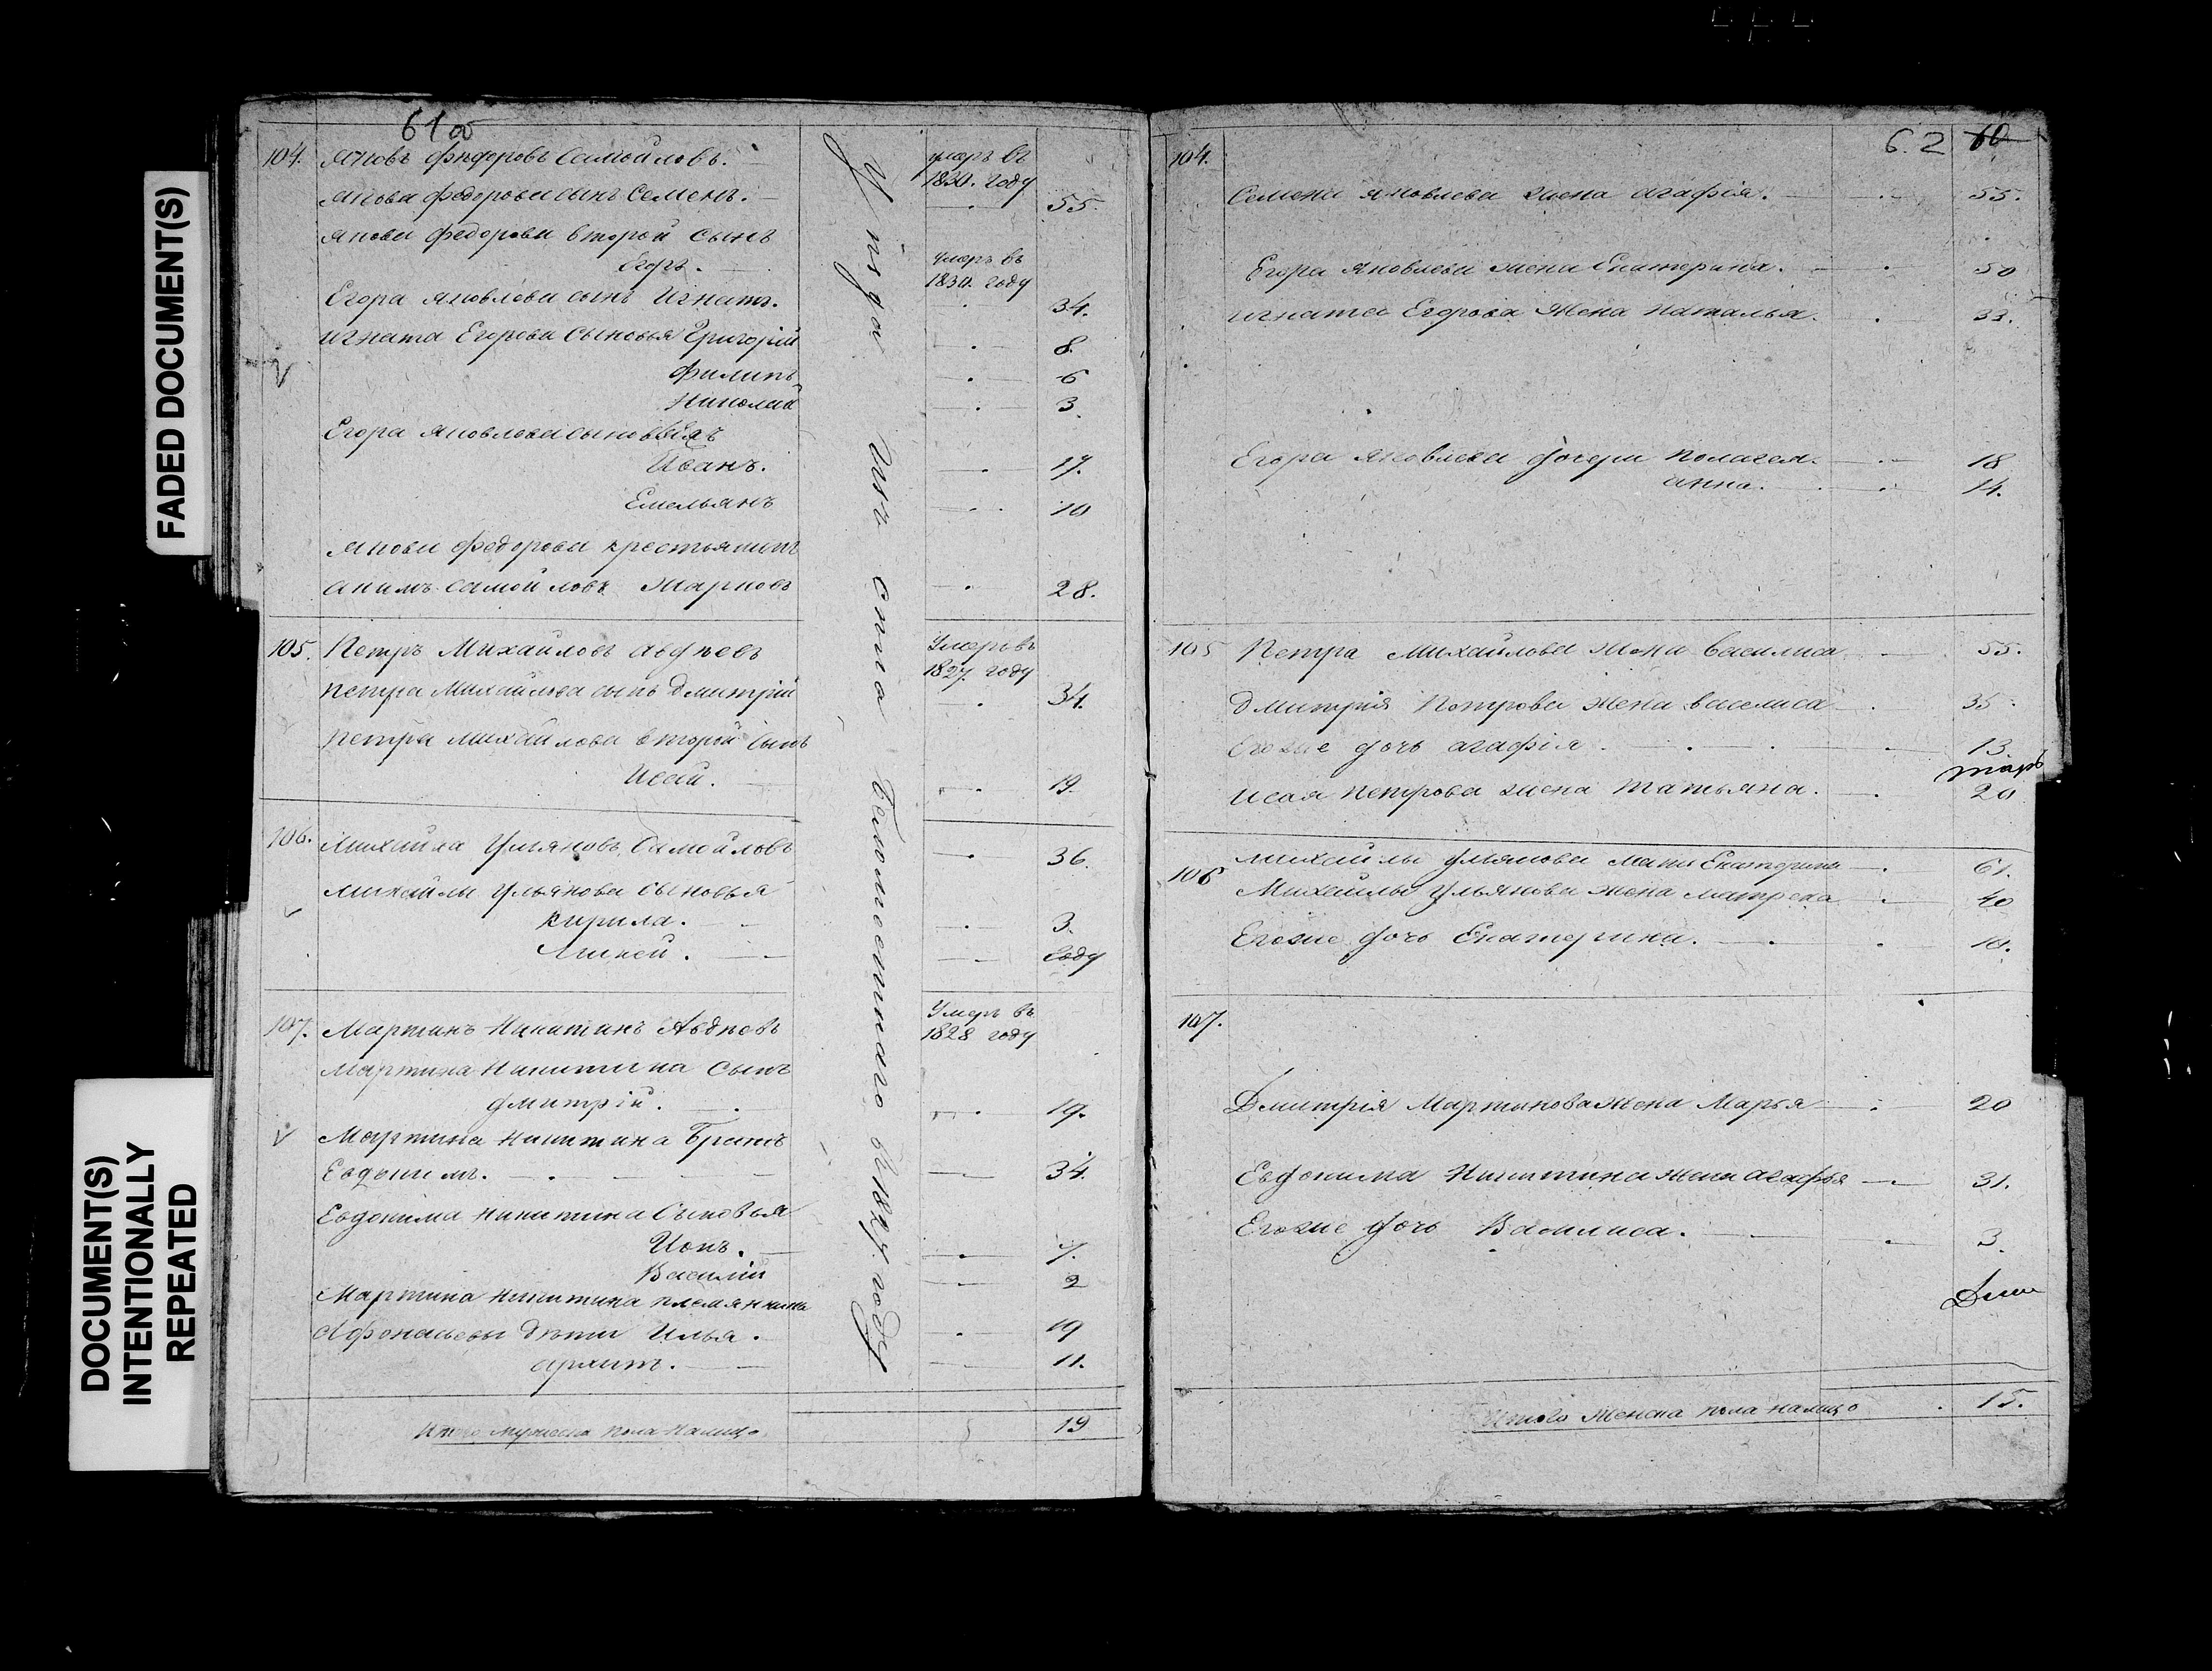 FADED DOCUMENT(S)
DOCUMENT(S)
INTENTIONALLY
REPEATED
61 об
104. Яковъ Федоровъ Самойловъ. умеръ въ 1830. году
Якова Федорова сынъ Семенъ. 55.
Якова Федорова второй сынъ
Егоръ. умеръ въ 1830. году
Егора Яковлева сынъ Игнатъ. 34.
Игната Егорова сыновья Григорій 8.
Филипъ 6
Николай 3.
Егора Яковлева сыновья
Иванъ. 17.
Емельянъ 10
Якова Федорова крестьянинъ
Акимъ Самойловъ Марковъ 28.
105. Петръ Михайловъ Авдѣевъ Умеръ въ 1827. году
Петра Михайлова сынъ Дмитрій 34.
Петра Михайлова второй сынъ
Исай. 19.
106. Михайла Ульяновъ Самойловъ 36.
Михайлы Ульянова сыновья
Кирила. 3.
году
107. Мартинъ Никитинъ Авдѣевъ Умеръ въ 1828 году
Мартина Никитина сынъ
Дмитрій. 19.
Мартина Никитина братъ
Евдокимъ. 34.
Евдокима Никитина сыновья
Іонъ. 7.
Василій 2
Мартина Никитина племянника
Афонасьевы дѣти Илья. 19
Архипъ. 11.
Итого мужеска пола налицо 19
году
62 60
104.
Семена Яковлева жена Агафія. 55.
Егора Яковлева жена Екатерина. 50
Игната Егорова жена Наталья. 33.
Егора Яковлева дочери Полагея. 18
Анна. 14.
105 Петра Михайлова жена Василиса 55.
Дмитрія Петрова жена Василиса 35.
Егоже дочь Агафія. 13.
Исая Петрова жена Татьяна. 20
106 Михайлы Ульянова мать Екатерина 61.
Михайлы Ульянова жена Матрена 40
Егоже дочь Екатерина. 10.
107.
Дмитрія Мартынова жена Марья 20
Евдокима Никитина жена Агафья 31.
Егоже дочь Василиса. 3.
Итого женска пола налицо 15.